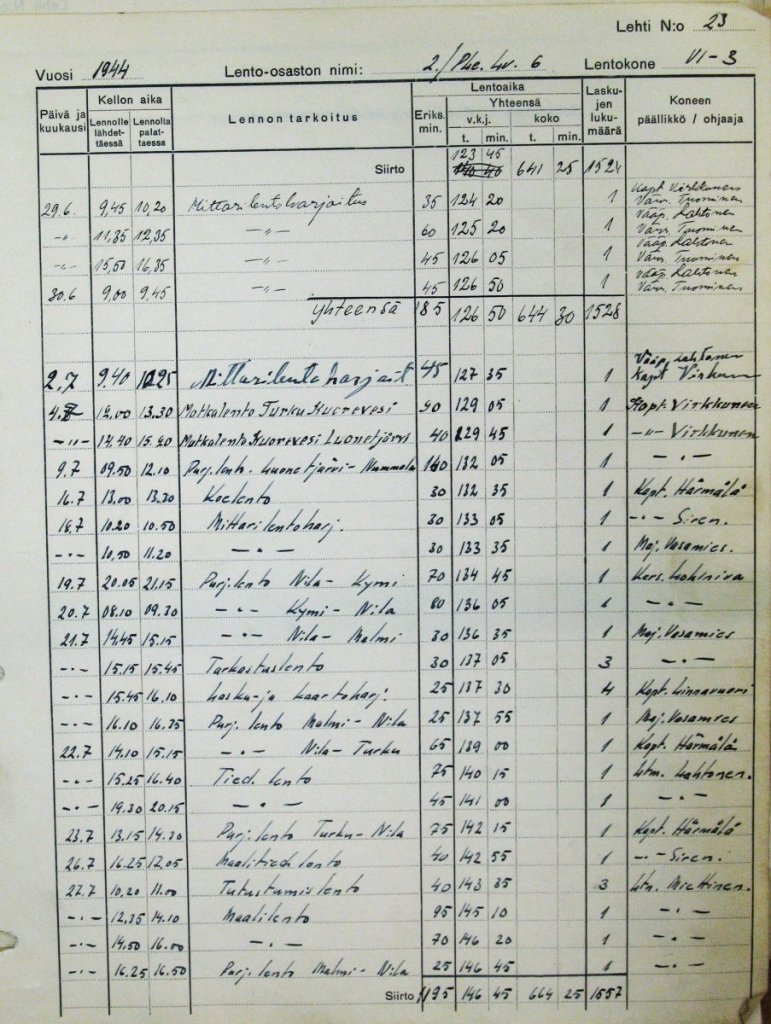 Lehti N:o 23
Vuosi 1944 Lento-osaston nimi: 2./Ple. Lv. 6 Lentokone VI-3
Päivä ja kuukausi Kellon aika Lennolle lähdettäessä Lennolta palattaessa Lennon tarkoitus Eriks. min. Lentoaika Yhteensä v.k.j. t. min. koko t. min. Laskujen lukumäärä Koneen päällikkö / ohjaaja
Siirto 123 45 641 25 1524
29.6. 9,45 10,20 Mittarilentoharjoitus 35 124 20 1 Kapt. Virkkunen Vänr. Tuominen
-"- 11,35 12,35 -"- 60 125 20 1 Vääp. Lahtonen Vänr. Tuominen
-"- 15,50 16,35 -"- 45 126 05 1 Vääp. Lahtonen Vänr. Tuominen
30.6 9,00 9.45 -"- 45 126 50 1 Vääp. Lahtonen Vänr. Tuominen
yhteensä 185 126 50 644 30 1528
2.7 9.40 1025 Mittarilentoharjoit 45 127 35 1 Vääp. Lahtonen Kapt Virkkunen
4.7 12.00 13.30 Matkalento Turku Kuorevesi 90 129 05 1 Kapt. Virkkunen
-"- 14.40 15.20 Matkalento Kuorevesi Luonetjärvi 40 129 45 1 -"- Virkkunen
9.7 09.50 12.10 Purj.lento. Luonetjärvi - Nummela 140 132 05 1 -"-
16.7 13.00 13.30 Koelento 30 132 35 1 Kapt. Härmälä
18.7 10.20 10.50 Mittarilentoharj. 30 133 05 1 -"- Siren.
-"- 10,50 11.20 -"- 30 133 35 1 Maj. Vasamies.
19.7 20.05 21.15 Purj.lento Nila - Kymi 70 134 45 1 Kers.
20.7 08.10 09.30 -"- Kymi - Nila 80 136 05 1 -"-
21.7 14,45 15.15 -"- Nila - Malmi 30 136 35 1 Maj. Vasamies
-"- 15.15 15.45 Tarkastuslento 30 137 05 3 -"-
-"- 15.45 16.10 Lasku-ja kaartoharj. 25 137 30 4 Kapt. Linnavuori
-"- 16.10 16.35 Purj.lento Malmi - Nila 25 137 55 1 Maj. Vasamies
22.7 14.10 15.15 -"- Nila - Turku 65 139 00 1 Kapt. Härmälä
-"- 15.25 16.40 Tied. lento 75 140 15 1 Ltm. Lahtonen.
-"- 19.30 20.15 -"- 45 141 00 1 -"-
23.7 13.15 14.30 Purj.lento Turku - Nila 75 142 15 1 Kapt. Härmälä
26.7 16.25 Maalitied lento 40 142 55 1 -"- Siren.
27.7 10,20 11.00 Tutustumislento 40 143 35 3 Ltn. Miettinen.
-"- 12,35 14.10 Maalilento 95 145 10 1 -"-
-"- 14,50 16.00 -"- 70 146 20 1 -"-
-"- 16.25 16.50 Purj.lento Malmi - Nila 25 146 45 1 -"-
Siirto 1195 146 45 664 25 1557